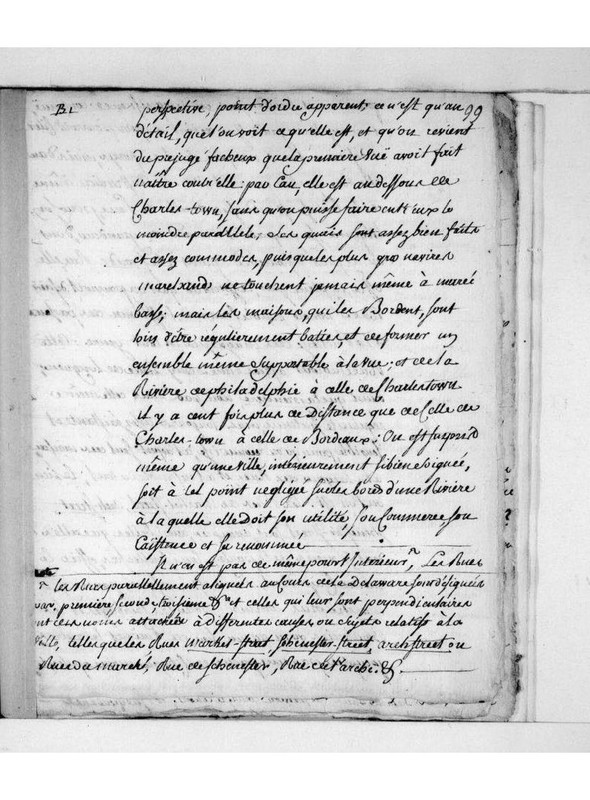 B1
99
perspective, point d'ordre apparent; ce n'est qu'au
détail, que l'on voit ce qu'elle est, et qu'on revient
du prejugé facheux que la premiere vuë avoit fait
naître contr'elle: par Eau, elle est au dessous de
Charles-town, sans qu'on puisse faire entr'eux le
moindre parallele; Les quais sont assez bien faits
et assez commodes, puisque les plus gros navires
marchands ne touchent jamais même à mareé
basse; mais les maisons, qui les Bordent, sont
loin d'être régulierement baties, et de former un
ensemble même supportable à la vue; et de la
Riviere de philadelphie à celle de Charlestown
il y a cent fois plus de Distance que de Celle de
Charles-town à celle de Bordeaux: On est surpris
même qu'une ville, intérieurement si bien soignée,
soit à tel point negligée sur les bords d'une Riviere
à la quelle elle Doit son utilité, son Commerce, son
Existence et sa renommée
Il n'en est pas de même pour l'Intérieur; Les Rues
les Rues parallellement alignées au Cours de la Delaware sont désignées
par premiere, second, troisieme &a et celles qui leur sont perpendiculaires
ont des noms attachés à differentes causes ou Sujets relatifs à la
ville, telles que les Rues market-street, schinester-street, archstreet ou
Rue du marché, Rue de schinester, Rue de l'arche. &